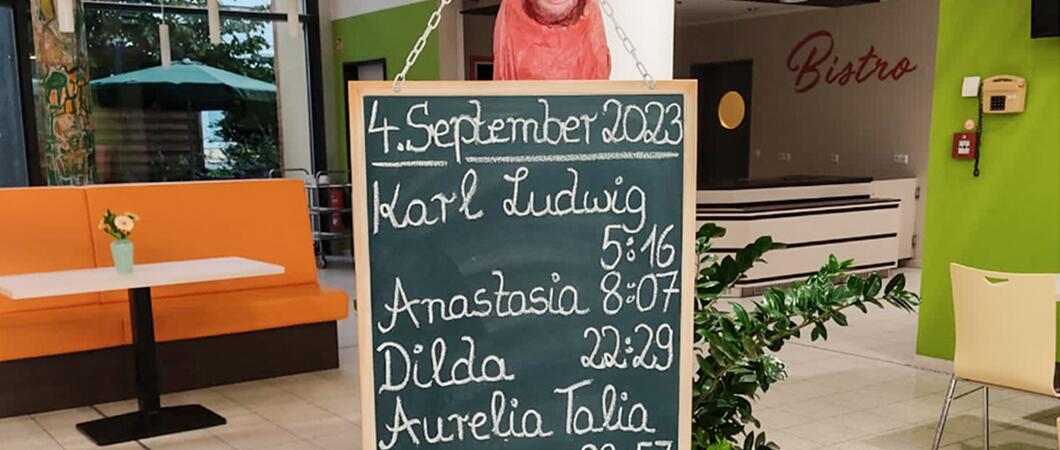 4. September 2023
Karl Ludwig
5:16
Anastasia 8:07
Dilda 22:29
Aurelia Talia
Bistro